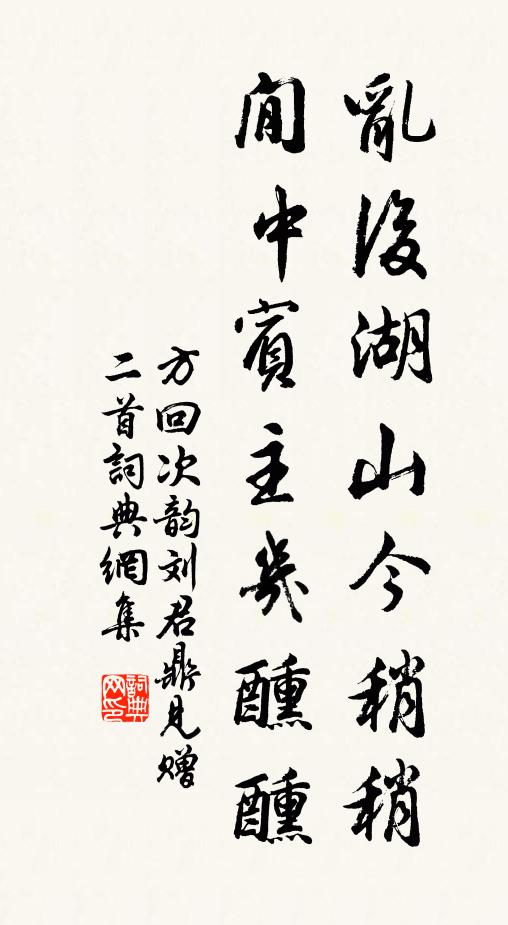 亂後湖山今稍稍
閒中賓主幾醺醺
方回次韵刘君鼎見赠
二首詞典網集
詞典网印